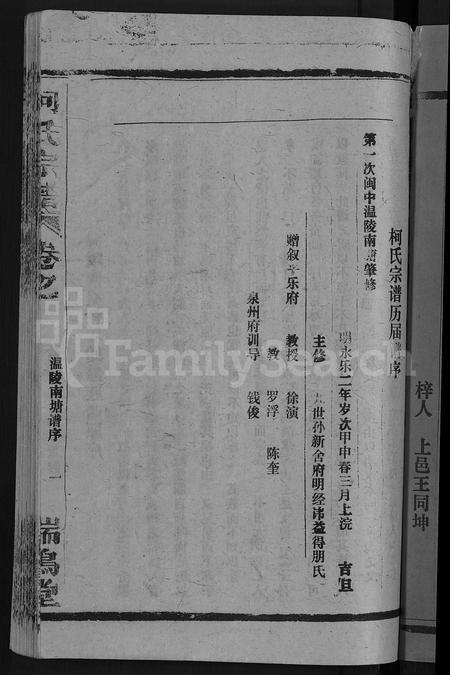 梓人　上邑王同坤
柯氏宗谱历届谱序
第一次闽中温陵南塘肇修
明永乐二年岁次甲申春三月上浣　吉旦
主修　世孙新舍府明经讳益得朋氏
赠叙平乐府　教授　徐演
教　罗浮　陈奎
泉州府训导　钱俊
柯氏宗谱卷之
温陵南塘谱序　一
瑞鸟堂
FamilySearch